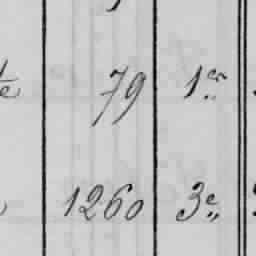 te 79 1er
1260 3e